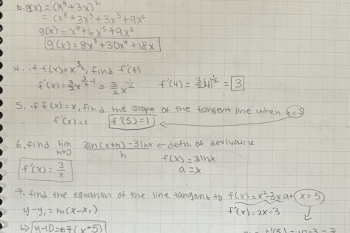 b. g(x) = (x⁴+3x)²
= (x⁸+3x⁵+3x⁵+9x²
g(x) = x⁸+6x⁵+9x²
g'(x) = 8x⁷+30x⁴+18x
4. if f(x)=x^(3/2), find f'(4)
f'(x) = 3/2 x^(3/2 - 1) = 3/2 x^(1/2) f'(4) = 3/2(4)^(1/2) = 3
5. if f(x)=x, find the slope of the tangent line when x=5
f'(x)=1 f'(5)=1
6. find lim h→0 3ln(x+h)-3lnx / h ← defn. of derivative
f'(x) = 3/x f(x) = 3lnx
a = x
7. find the equation of the line tangent to f(x)=x²-3x at x=5
y-y₁ = m(x-x₁) f'(x) = 2x-3
↳ y-10=7(x-5)